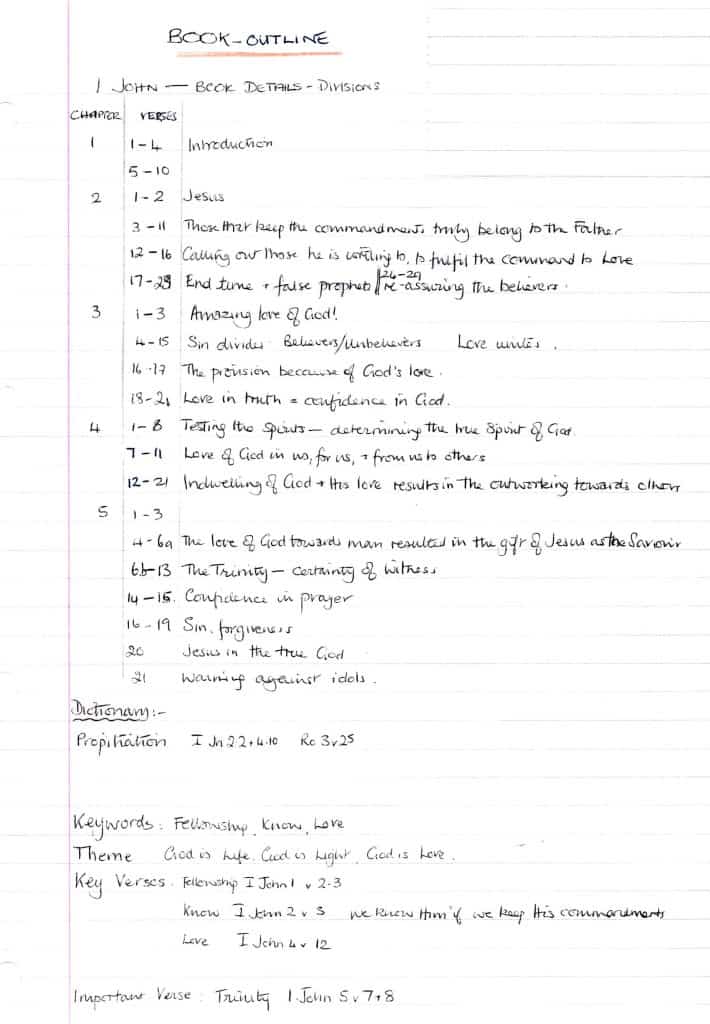 BOOK-OUTLINE
1 JOHN — BOOK DETAILS - DIVISIONS
CHAPTER VERSES
1 1-4 Introduction
5-10
2 1-2 Jesus
3-11 Those that keep the commandments truly belong to the Father
12-16 Calling out those he is writing to, to fulfil the command to Love
17-29 End time + false prophets // 24-29 re-assuring the believers.
3 1-3 Amazing love of God!
4-15 Sin divides Believers/Unbelievers Love unites.
16-17 The provision because of God's love.
18-24 Love in truth = confidence in God.
4 1-8 Testing the spirits — determining the true Spirit of God.
7-11 Love of God in us, for us, + from us to others
12-21 Indwelling of God + His love results in the outworking towards others
5 1-3
4-6a The love of God towards man resulted in the gift of Jesus as the Saviour
6b-13 The Trinity — certainty of witness
14-15. Confidence in prayer
16-19 Sin, forgiveness
20 Jesus in the true God
21 Warning against idols.
Dictionary:-
Propitiation I Jn 2.2 + 4.10 Ro 3v25
Keywords: Fellowship, Know, Love
Theme God is Life. God is Light, God is Love.
Key Verses. Fellowship I John 1 v 2-3
Know I John 2 v 3 we know Him if we keep His commandments
Love I John 4 v 12
Important Verse: Trinity 1 John 5 v 7+8